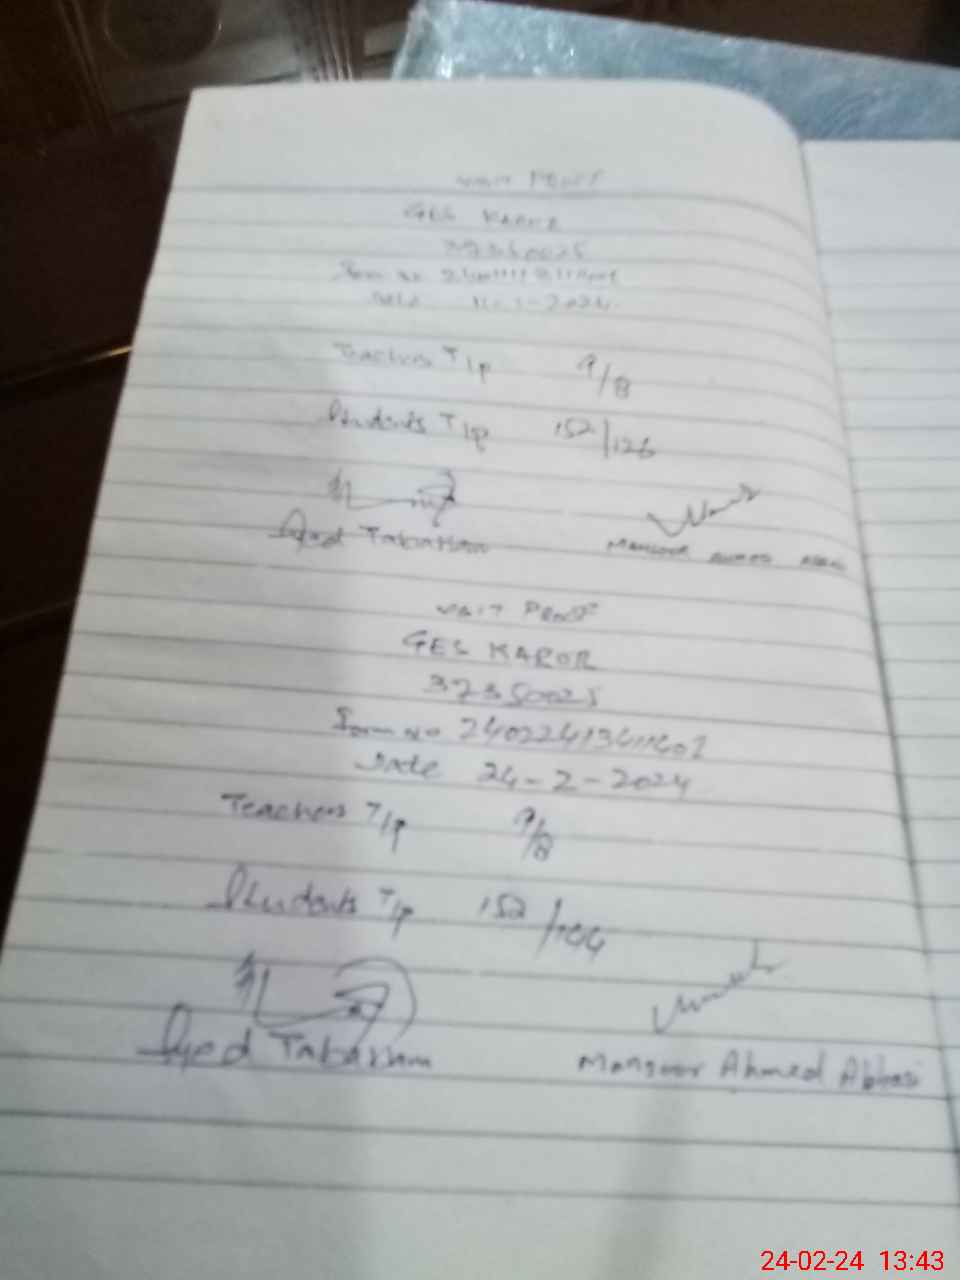 VISIT PROOF
GES KAROR
Date 11-1-2024
Teachers T/p 9/8
Students T/p 152/126
Syed Tabarham
MANSOOR AHMED ABBASI
VISIT PROOF
GES KAROR
37350025
Form no
Date 24-2-2024
Teachers T/p 9/8
Students T/p 152/144
Syed Tabarham
Mansoor Ahmed Abbasi
24-02-24 13:43